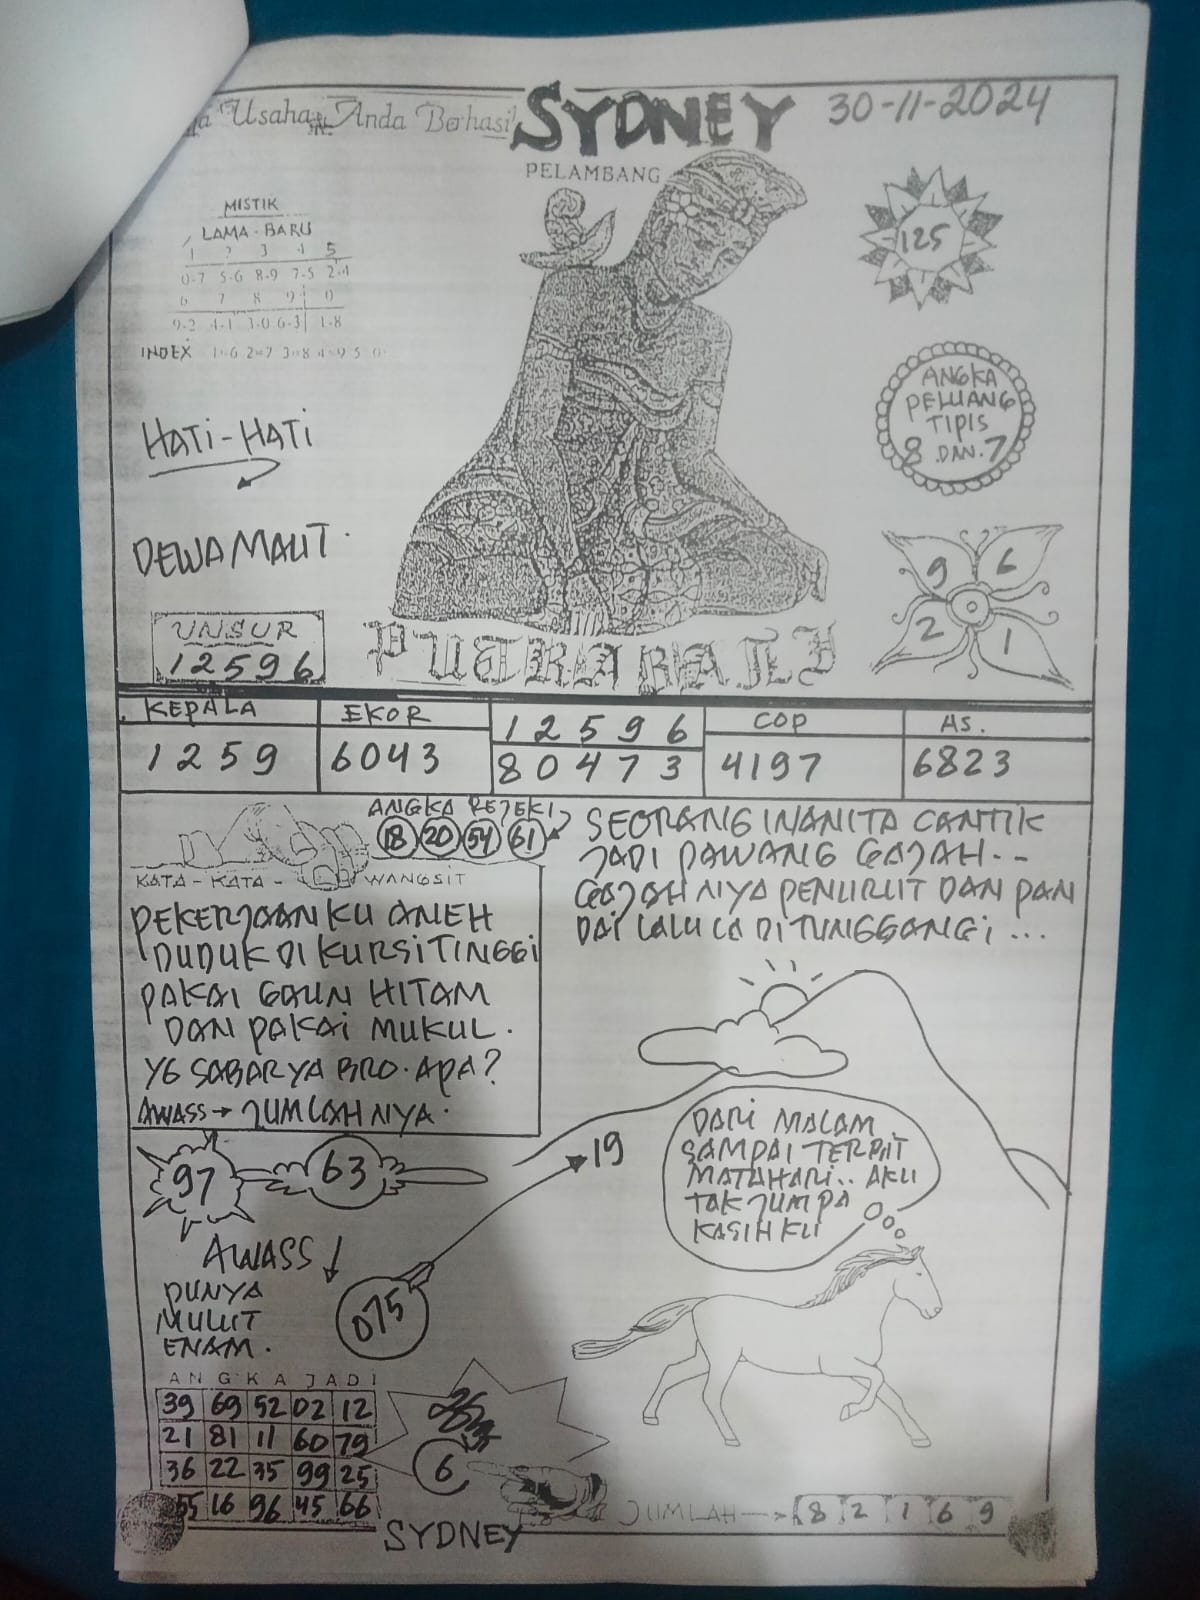 Usaha Anda Berhasil
SYDNEY
30-11-2024
PELAMBANG
MISTIK
LAMA - BARU
1 2 3 4 5
0-7 5-6 8-9 7-5 2-4
6 7 8 9 0
9-2 4-1 3-0 6-3 1-8
INDEX 1=6 2=7 3=8 4=9 5 0
125
ANGKA
PELUANG
TIPIS
8 DAN. 7
HATI-HATI
DEWA MAUT.
9 6
2 1
UNSUR
12596
PUTRA BALI
KEPALA EKOR 12596 COP AS.
1259 6043 80473 4197 6823
ANGKA REJEKI
18 20 54 61
KATA - KATA - WANGSIT
PEKERJAAN KU ANEH
DUDUK DI KURSI TINGGI
PAKAI GAUN HITAM
DAN PAKAI MUKUL.
YG SABAR YA BRO. APA?
AWASS → JUMLAH NYA.
SEORANG WANITA CANTIK
JADI PAWANG GAJAH..
GAJAH NYA PENURUT DAN PAN
DAI LALU LA DI TUNGGANGI ...
97 63
19
DARI MALAM
SAMPAI TERBIT
MATAHARI.. AKU
TAK JUMPA
KASIH KU
AWASS ↓
PUNYA
MULUT
ENAM.
075
ANGKA JADI
39 69 52 02 12
21 81 11 60 79
36 22 35 99 25
55 16 96 45 66
6
JUMLAH → 8 2 1 6 9
SYDNEY